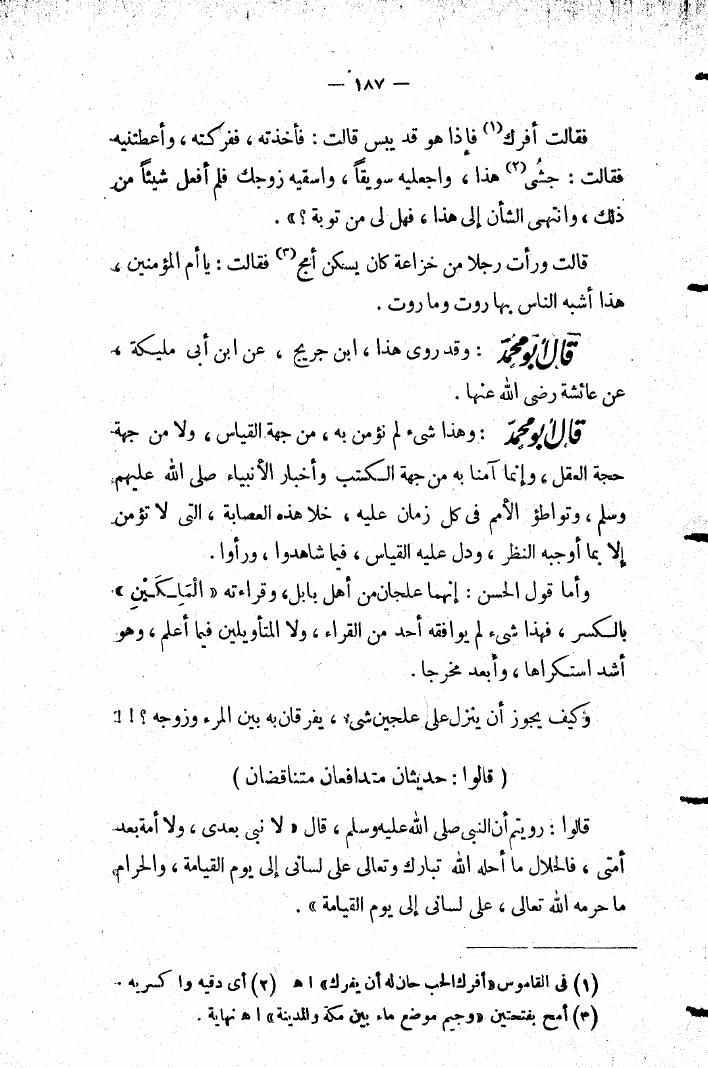 — ١٨٧ —
فقالت أفرك(١) فإذا هو قد يبس قالت : فأخذته ، ففركته ، وأعطتنيه
فقالت : جشُّى(٢) هذا ، واجعليه سويقاً ، واسقيه زوجك فلم أفعل شيئاً من
ذلك ، وانتهى الشأن إلى هذا ، فهل لى من توبة ؟» .
قالت ورأت رجلا من خزاعة كان يسكن أمج(٣) فقالت : يا أم المؤمنين ،
هذا أشبه الناس بهاروت وماروت .
قال أبو محمد : وقد روى هذا ، ابن جريج ، عن ابن أبى مليكة ،
عن عائشة رضى الله عنها .
قال أبو محمد : وهذا شىء لم نؤمن به ، من جهة القياس ، ولا من جهة
حجة العقل ، وإنما آمنا به من جهة الكتب وأخبار الأنبياء صلى الله عليهم
وسلم ، وتواطؤ الأمم فى كل زمان عليه ، خلا هذه العصابة ، التى لا تؤمن
إلا بما أوجبه النظر ، ودل عليه القياس ، فيما شاهدوا ، ورأوا .
وأما قول الحسن : إنهما علجان من أهل بابل، وقراءته « الْمَلِكَيْنِ »
بالكسر ، فهذا شىء لم يوافقه أحد من القراء ، ولا المتأولين فيما أعلم ، وهو
أشد استكراها ، وأبعد مخرجا .
وكيف يجوز أن ينزل على علجين شىء ، يفرقان به بين المرء وزوجه ؟ ! !
( قالوا : حديثان متدافعان متناقضان )
قالوا : رويتم أن النبى صلى الله عليه وسلم ، قال « لا نبى بعدى ، ولا أمة بعد
أمتى ، فالحلال ما أحله الله تبارك وتعالى على لسانى إلى يوم القيامة ، والحرام
ما حرمه الله تعالى ، على لسانى إلى يوم القيامة » .
(١) فى القاموس «أفرك الحب حان له أن يفرك» ا ه (٢) أى دقيه وا كسريه .
(٣) أمح بفتحتين «وجيم موضع ماء بين مكة والمدينة» ا ه نهاية .